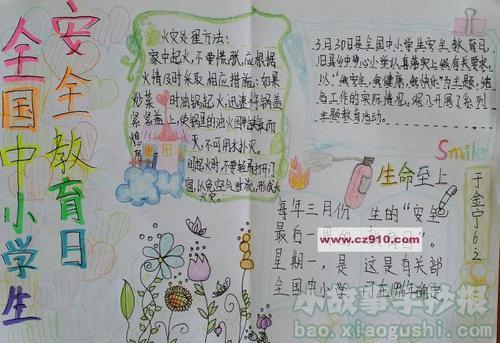 全国中小学生
安全教育日
火灾处理方法：
家中起火，不要慌张，应根据
火情及时采取相应措施：如果
炒菜时油锅起火，迅速将锅盖
紧紧盖上，使锅里的油火因缺氧而
熄灭，不可用水扑灭。
起火时，不要轻易打开门
窗，以免空气对流，形成大
火灾。
3月30日是全国中小学生安全教育日，
真落实上级有关要求，
以“我安全、我健康、我快乐”为主题，结
合工作的实际情况，开展了系列
主题教育活动。
Smile
生命至上
于金宁62
每年三月份
最后一周的
星期一，是
全国中小学
生的“安全
教育日”。
这是有关部
www.cz910.com
小故事手抄报
bao.xiaogushi.com